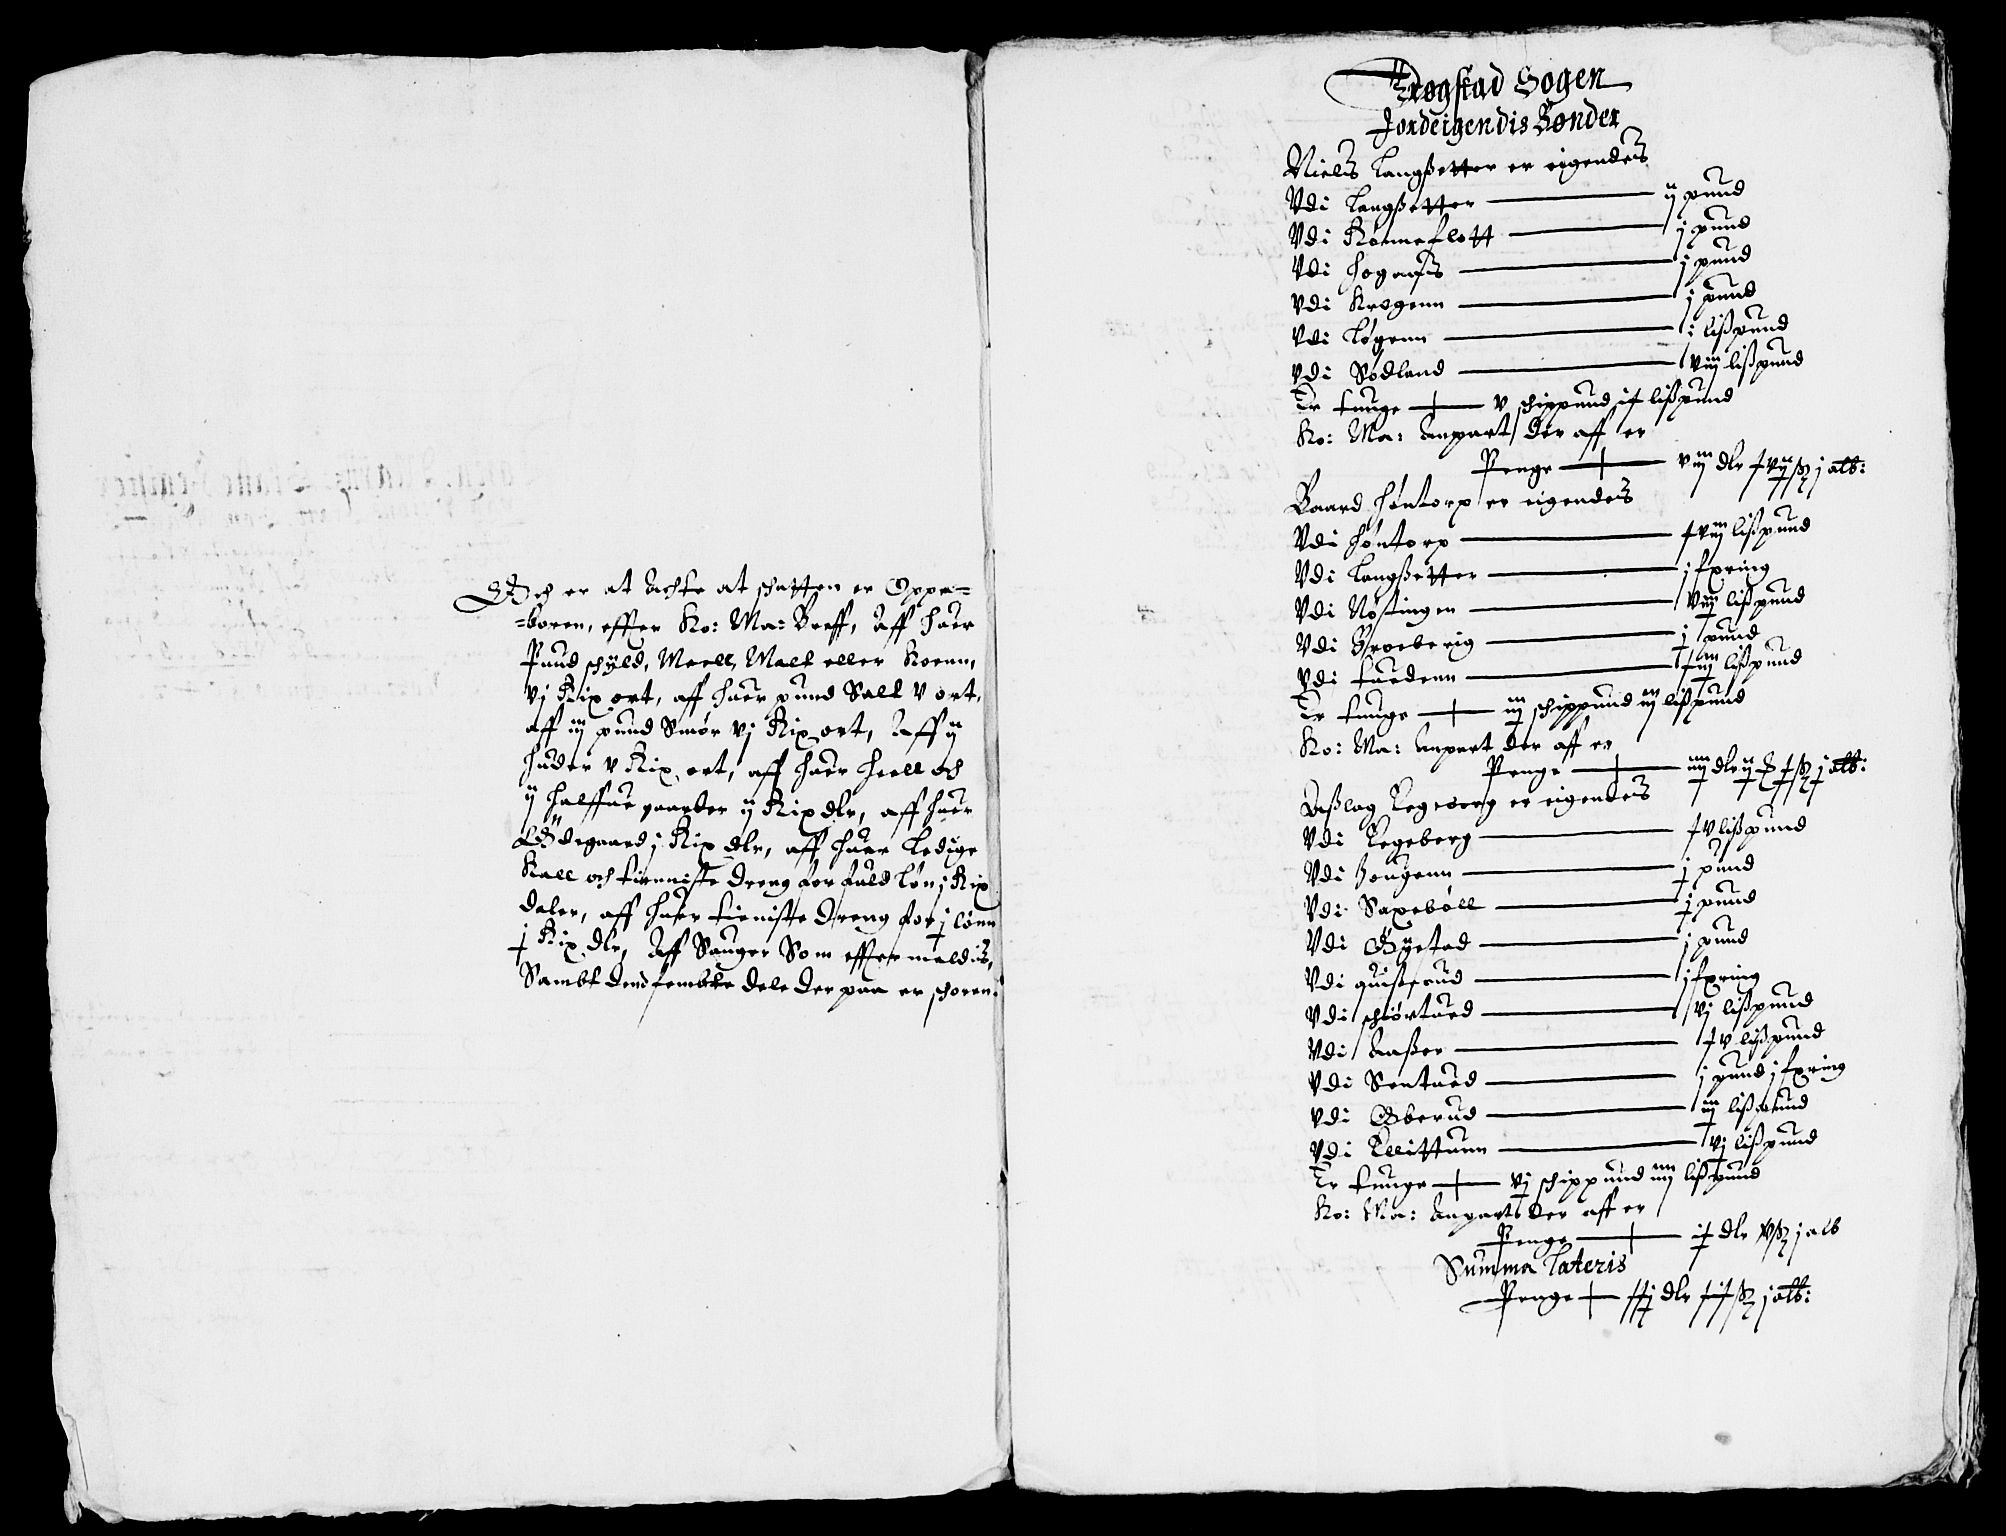 Och er at Achte at schatten er Oppe=
=boren, effter Ko: Ma: Breff, Aff huer
Pund schÿld, Meell, Malt eller Kornn,
vj Rix ort, aff huer pund Salt v ort,
aff iij pund Smør vj Rix ort, Aff ij
huder v Rix ort, aff huer heell och
ij halffue gaarder ij Rix dlr, aff huer
Ødegaard j Rix dlr, aff huer Ledige
Karl och tienniste dreng for fuld løn j Rix
daler, aff huer tieniste dreng for ½ lønn
½ Rix dlr, Aff Sauger Som effter meldis,
Sambt dend tembte dele der paa er schoren.
Trøgstad Sogen
Jordeigendis Bønder
Niels Langßetter er eigendis
Vdi Langßetter ij pund
Vdi Rønneflott j pund
Vdi Hogaaß j pund
Vdi Krogenn j pund
Vdi Løgenn j lißpund
Vdi Sødland viij lißpund
Er tunge v schippund ix lißpund
Ko: Ma: Anpart der aff er
Penge viij dlr xvij ß j alb:
Baard Høntorp er eigendis
Vdi Høntorp xviij lißpund
Vdi Langßetter j fxring
Vdi Nøstingen viij lißpund
Vdi Broeberig ½ pund
Vdi tueden xiij lißpund
Er tunge iij schippund iij lißpund
Ko: Ma: Anpart der aff er
Aßlag Regeberg er eigendis
Vdi Regeberg xv lißpund
Vdi Hougenn ½ pund
Vdi Saxebøll ½ pund
Vdi Bÿestad j pund
Vdi quisterud j fxring
Vdi schiørtued vj lißpund
Vdi Aaßer xv lißpund
Vdi Sentued j pund j fxring
Vdi Oberud lißpund
Vdi Kleittunn lißpund
Er tunge vj schippund iiij lißpund
Ko: Ma: Anparts der aff er
Penge dlr ß j alb
Summa Lateris
Penge dlr ß j alb: